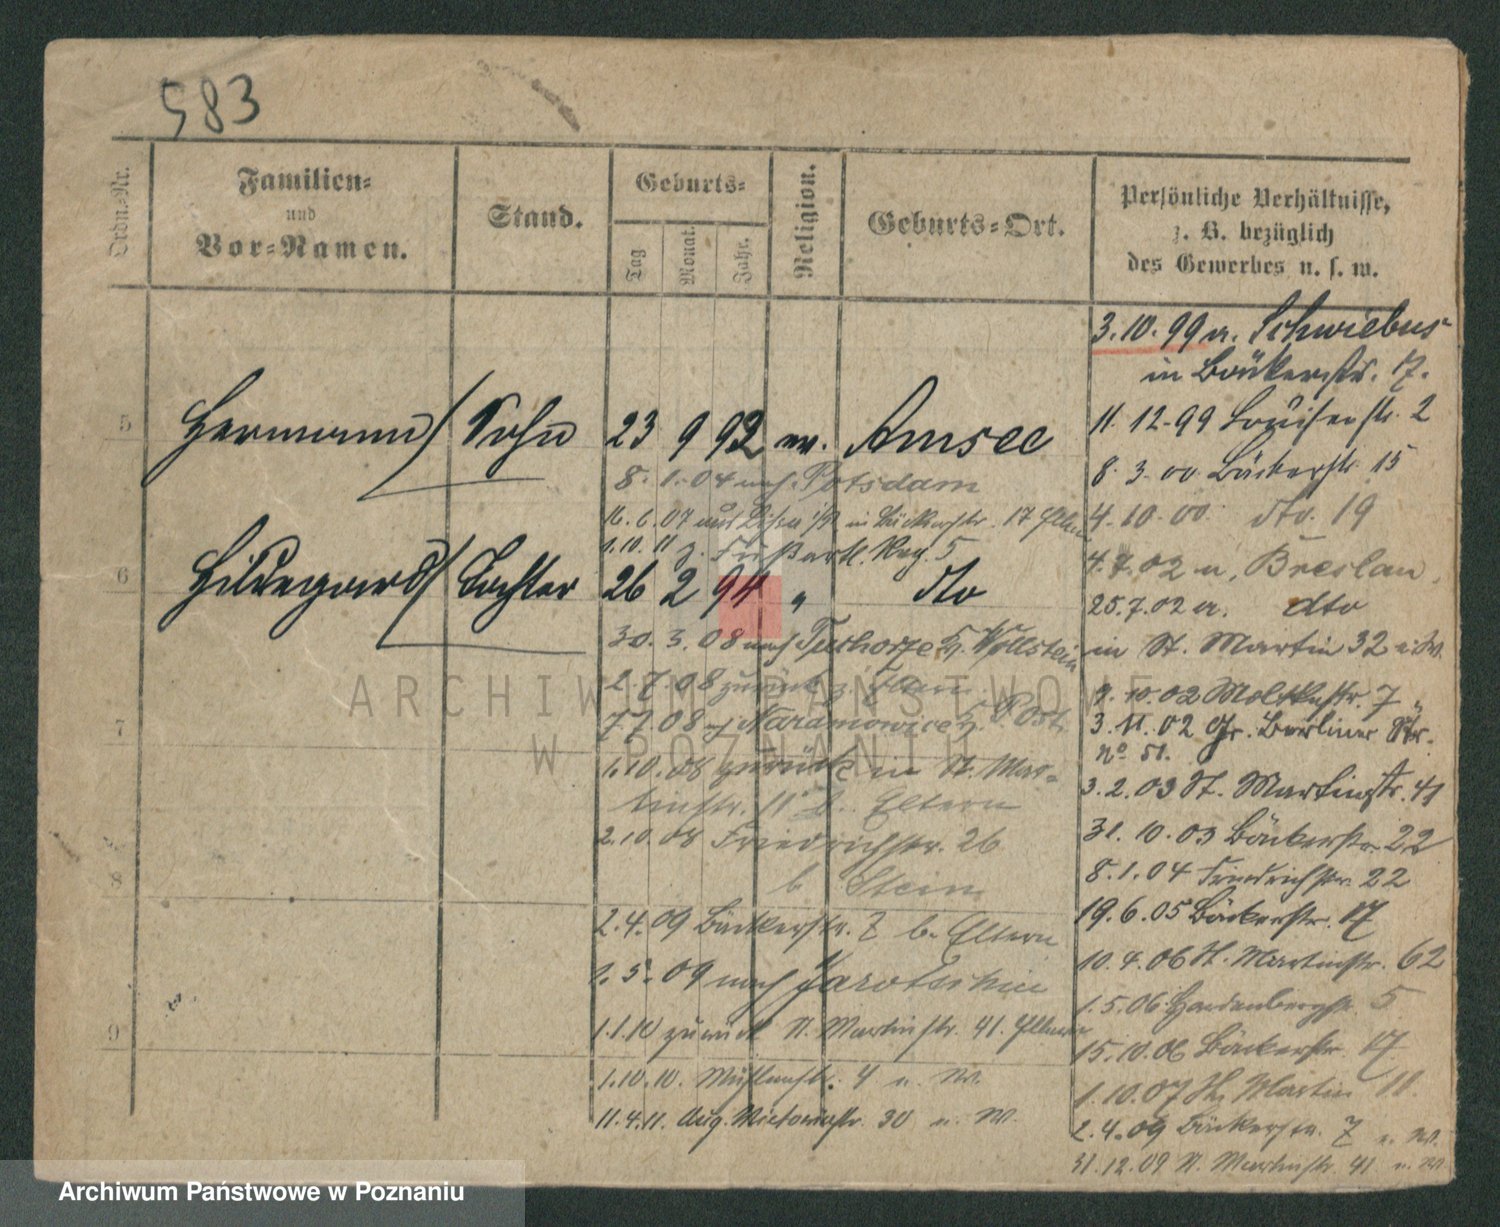 583
Ordn.-Nr.
Familien-
und
Vor-Namen.
Stand.
Geburts-
Tag
Monat.
Jahr.
Religion.
Geburts-Ort.
Persönliche Verhältnisse,
z. B. bezüglich
des Gewerbes u. s. w.
3.10.99 a. Schwiebus
in Bäckerstr. 17.
5 Hermann Sohn 23 9 92 ev. Amsee
11.12.99 Louisenstr. 2
8.3.00 Bäckerstr. 15
8.1.04 nach Potsdam
4.10.00 dto. 19
16.6.07 aus Lissa i/P in Bäckerstr. 17 Eltern
1.10.11 z. Fußartl. Reg. 5
4.7.02 n. Breslau
6 Hildegard Tochter 26 2 94 " dto
25.7.02 a. dto
30.3.08 nach Wollstein
in St. Martin 32 u. W.
2.7.08 zurück z. Eltern
2.10.02 Moltkestr. 7 "
7.7.08 n. Naramowice Post
3.11.02 Gr. Berliner Str.
No 51.
1.10.08 zurück in St. Mar-
tinstr. 11 b. Eltern
3.2.03 St. Martinstr. 41
2.10.08 Friedrichstr. 26
b. Stein
31.10.03 Bäckerstr. 22
8.1.04 Friedrichstr. 22
2.4.09 Bäckerstr. 7 b. Eltern
19.6.05 Bäckerstr. 17
1.5.09 nach Jarotschin
10.4.06 St. Martinstr. 62
1.5.06 Hardenbergstr. 5
1.1.10 zurück St. Martinstr. 41. Eltern
15.10.06 Bäckerstr. 17
1.10.10. Mühlenstr. 4 u. W.
1.10.07 St. Martin 11.
11.4.11. Aug. Victoriastr. 30 u. W.
2.4.09 Bäckerstr. 7 u. W.
31.12.09 St. Martinstr. 41 u. W.
7
8
9
ARCHIWUM PAŃSTWOWE
W POZNANIU
Archiwum Państwowe w Poznaniu